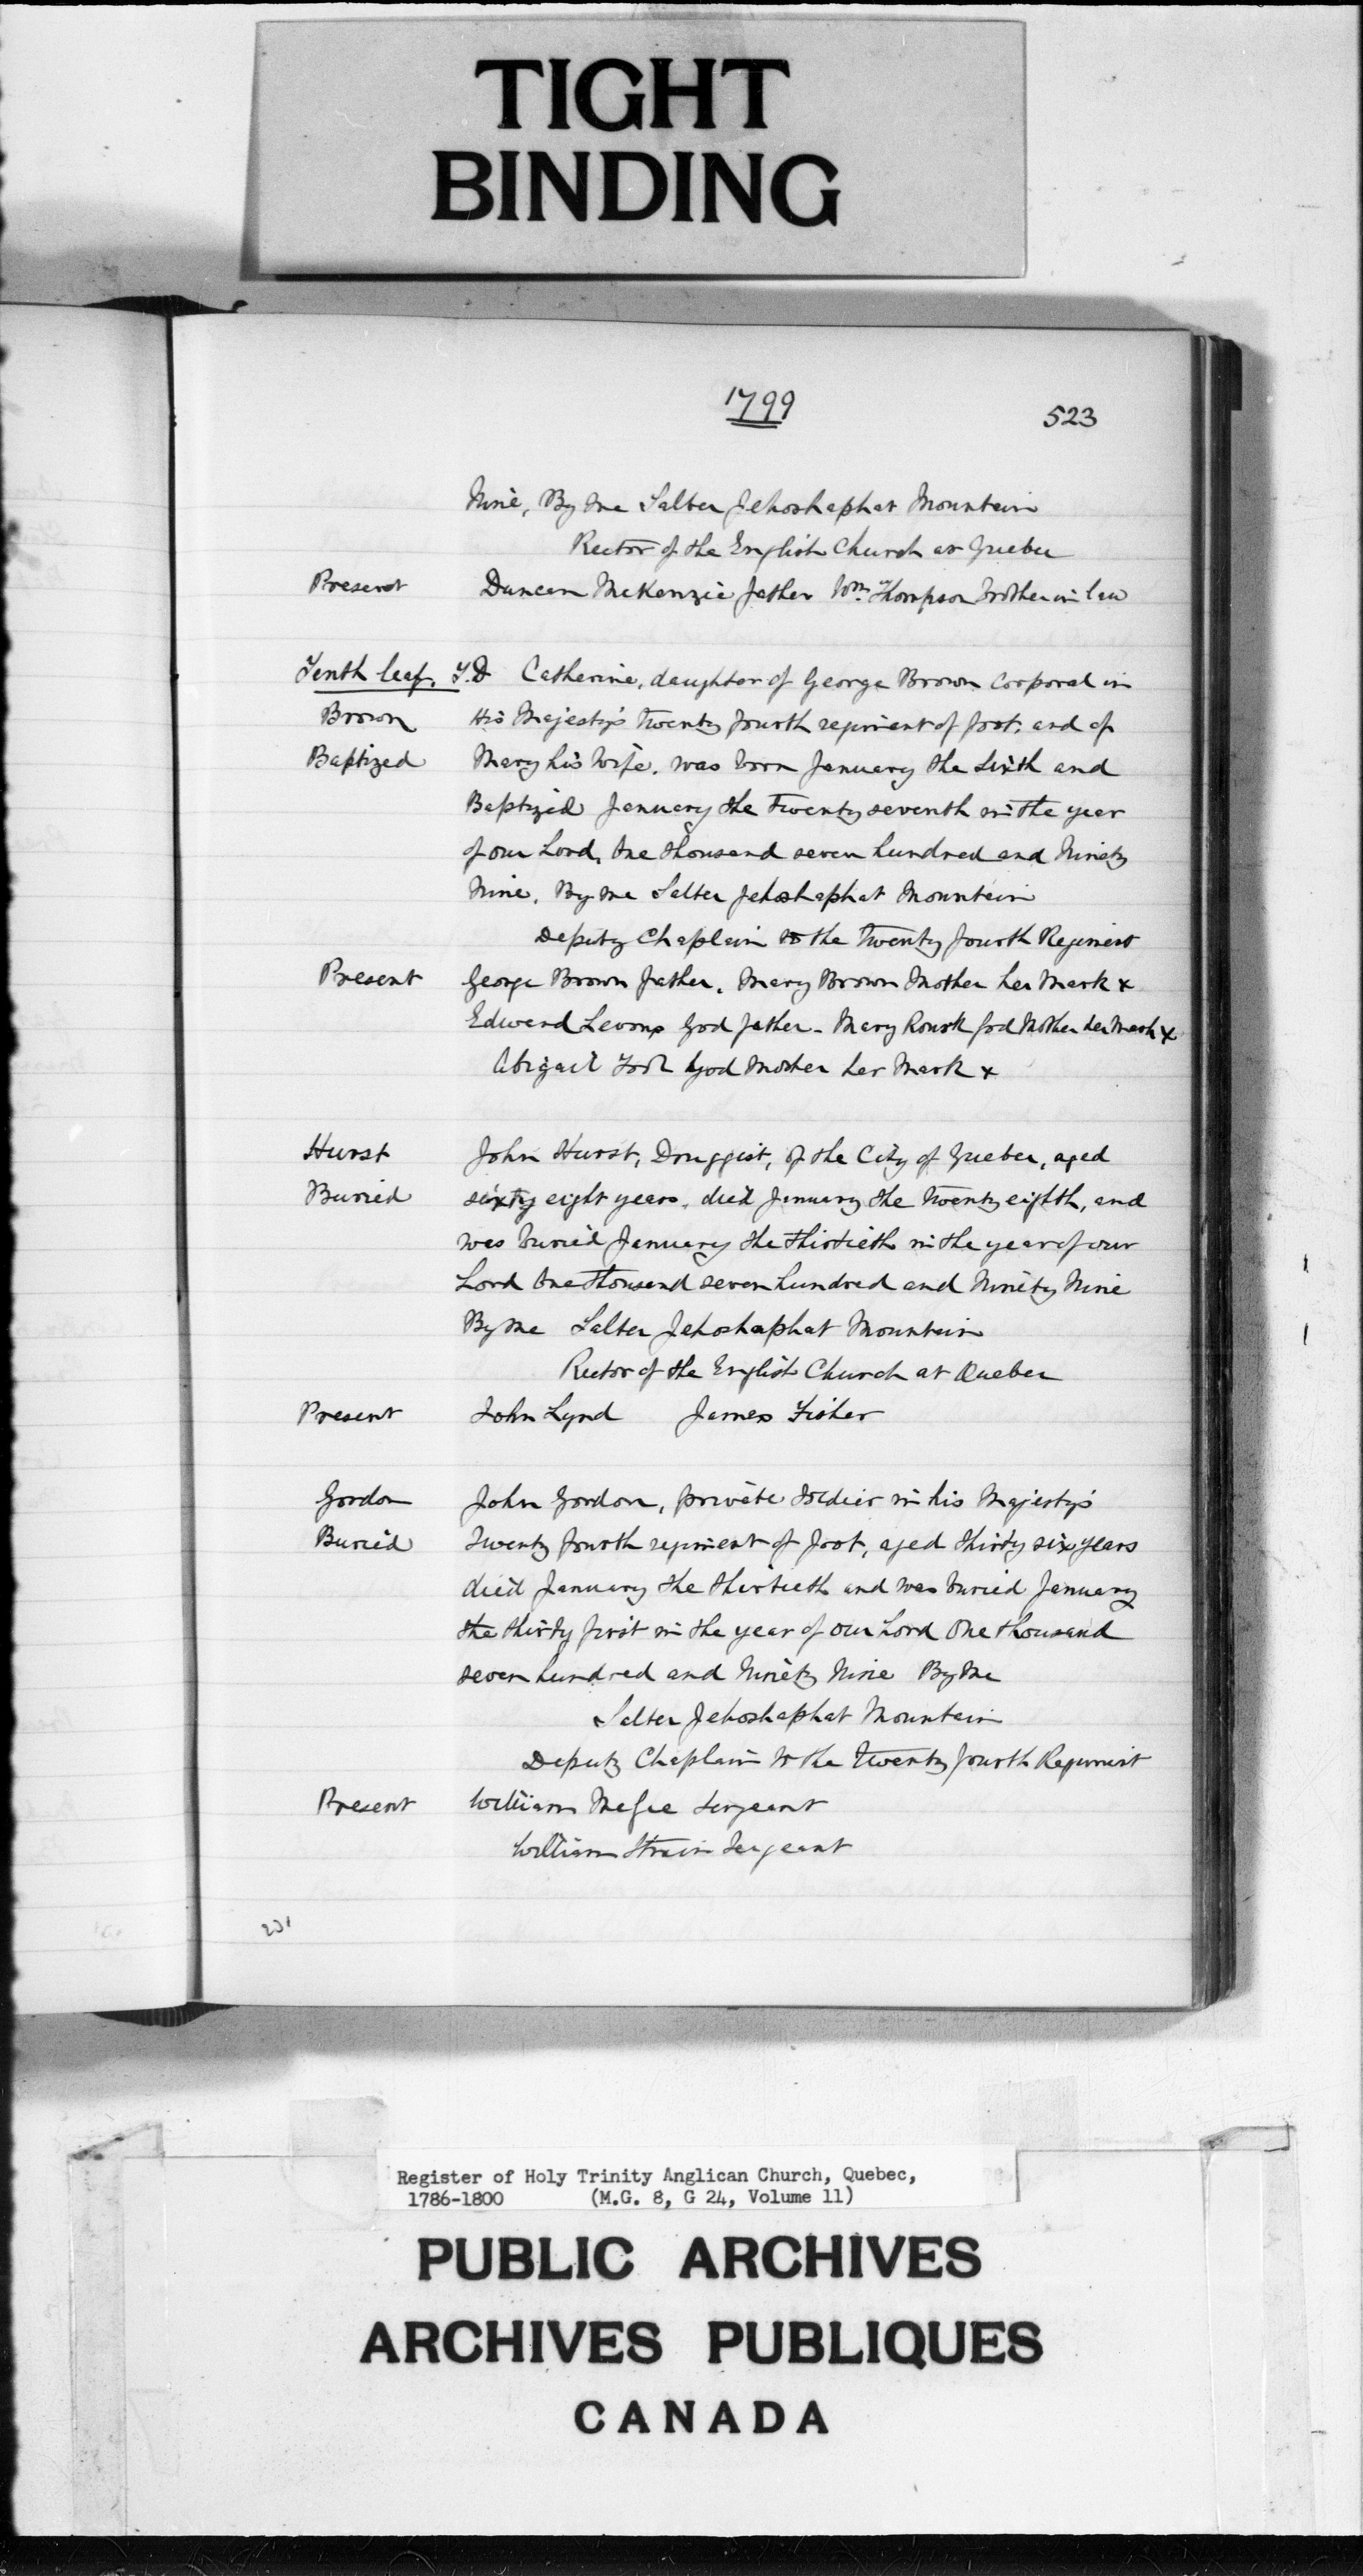 TIGHT
BINDING
1799
523
Nine, By me Salter Jehoshaphat Mountain
Rector of the English Church at Quebec
Present Duncan McKenzie father Wm. Thompson brother in law
Tenth leaf. T.D Catherine, daughter of George Brown Corporal in
Brown His Majesty's Twenty fourth regiment of foot, and of
Baptized Mary his wife, was born January the Sixth and
Baptized January the Twenty seventh in the year
of our Lord, One thousand seven hundred and Ninety
Nine, By me Salter Jehoshaphat Mountain
Deputy Chaplain to the Twenty fourth Regiment
Present George Brown father, Mary Brown Mother her mark x
Edward God father - Mary Rourk God Mother her mark x
Abigail God Mother her Mark x
Hurst John Hurst, Druggist, of the City of Quebec, aged
Buried sixty eight years, died January the Twenty eighth, and
was buried January the thirtieth in the year of our
Lord One thousand seven hundred and Ninety Nine
By me Salter Jehoshaphat Mountain
Rector of the English Church at Quebec
Present John Lynd James Fisher
Gordon John Gordon, private Soldier in his Majesty's
Buried Twenty fourth regiment of foot, aged thirty six years
died January the thirtieth and was buried January
the thirty first in the year of our Lord One thousand
seven hundred and Ninety Nine By me
Salter Jehoshaphat Mountain
Deputy Chaplain to the Twenty fourth Regiment
Present William McGee Sergeant
William Strain Sergeant
Register of Holy Trinity Anglican Church, Quebec,
1786-1800 (M.G. 8, G 24, Volume 11)
PUBLIC ARCHIVES
ARCHIVES PUBLIQUES
CANADA